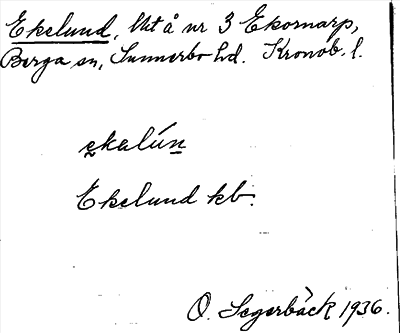 Ekelund, Ut å nr 3 Ekornarp,
Berga sn, Sunnerbo hd. Kronob. l.
ekalún
Ekelund kb.
O. Segerbäck 1936.